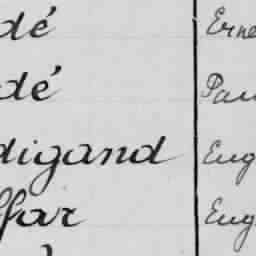 dé Erne
dé Pau
digand Eug
ffar Eug